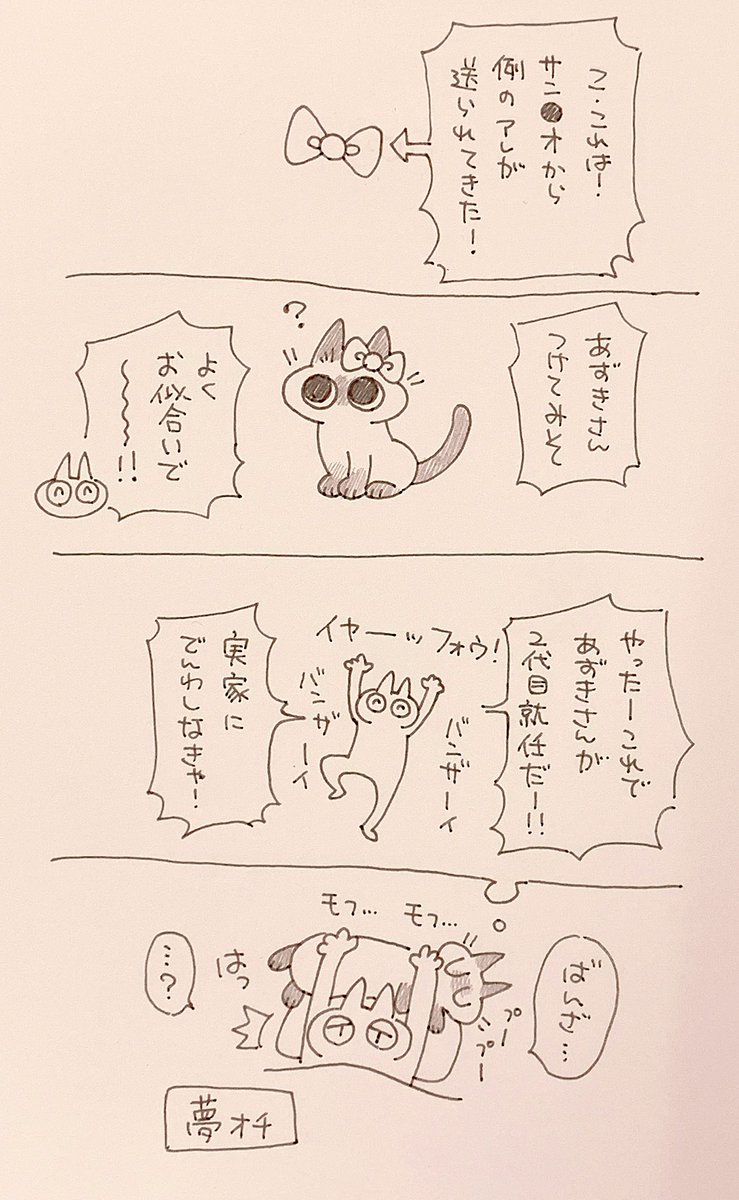 こ・これは!
サン●オから
例のアレが
送られてきた!
あずきさん
つけてみて〜
?
よく
お似合いで
〜〜〜〜!!
やったーこれで
あずきさんが
2代目就任だー!!
イヤーッフォウ!
バンザーイ
バンザーイ
実家に
でんわしなきゃ!
ばんざ…
モフ…
モフ…
プー
プー
はっ
…?
夢オチ